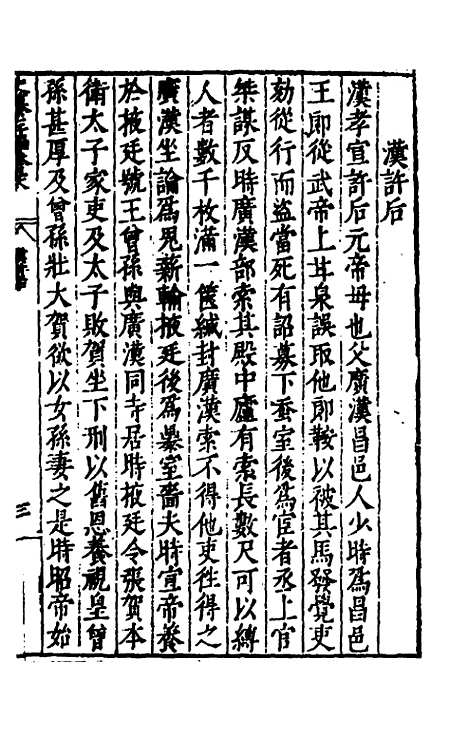 漢許后
漢孝宣許后元帝母也父廣漢昌邑人少時爲昌邑
王郎從武帝上甘泉誤取他郎鞍以被其馬發覺吏
劾從行而盜當死有詔募下蚕室後爲宦者丞上官
桀謀反時廣漢部索其殿中廬有索長數尺可以縳
人者數千枚滿一篋緘封廣漢索不得他吏往得之
廣漢坐論爲鬼薪輸掖廷後爲暴室嗇夫時宣帝養
於掖廷號王曾孫與廣漢同寺居時掖廷令張賀本
衛太子家吏及太子敗賀坐下刑以舊恩養視皇曾
孫甚厚及曾孫壯大賀欲以女孫妻之是時昭帝始
三